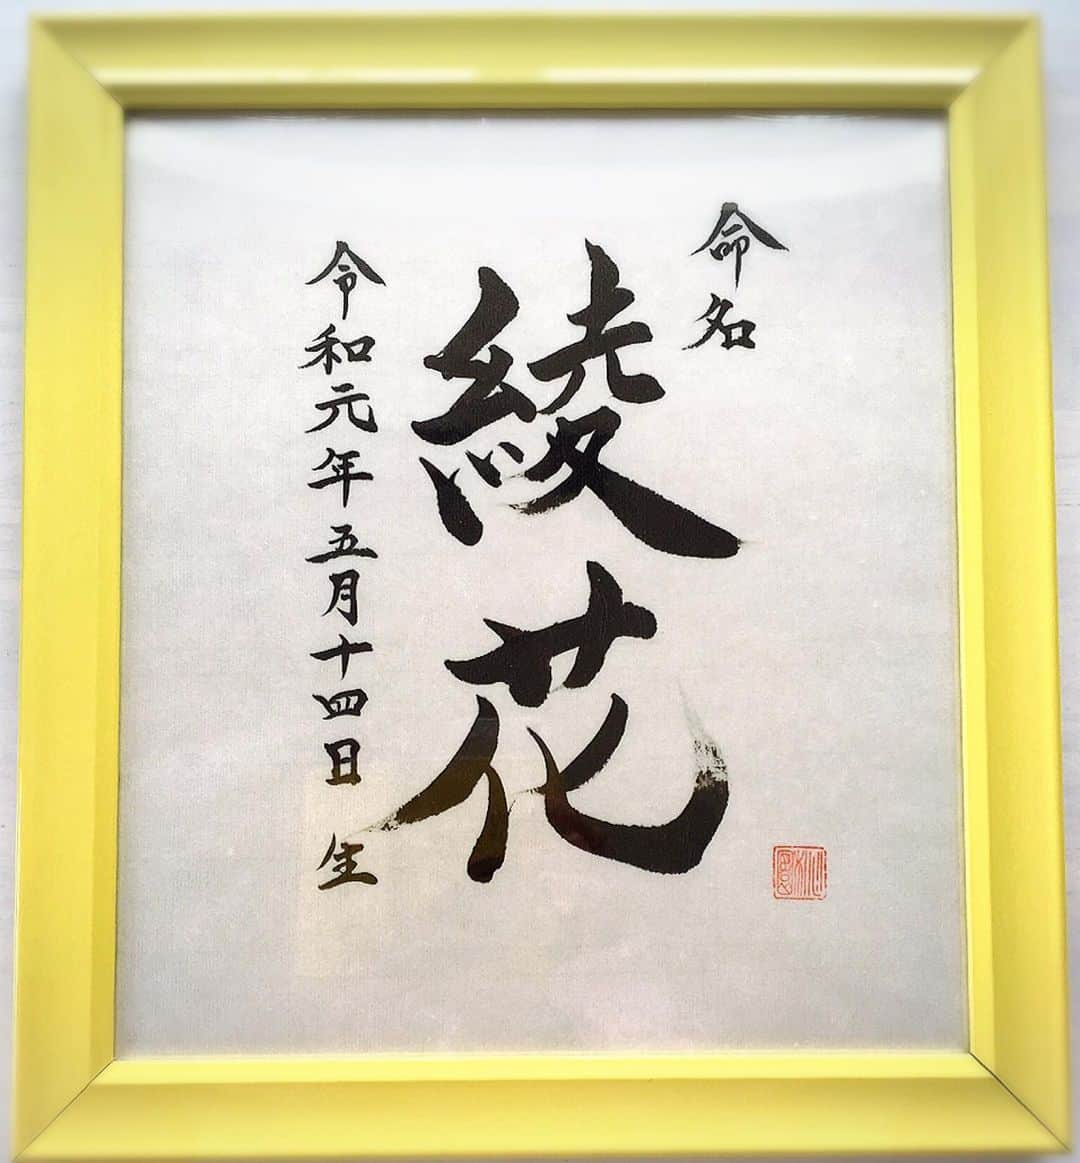 命名
綾花
令和元年五月十四日 生